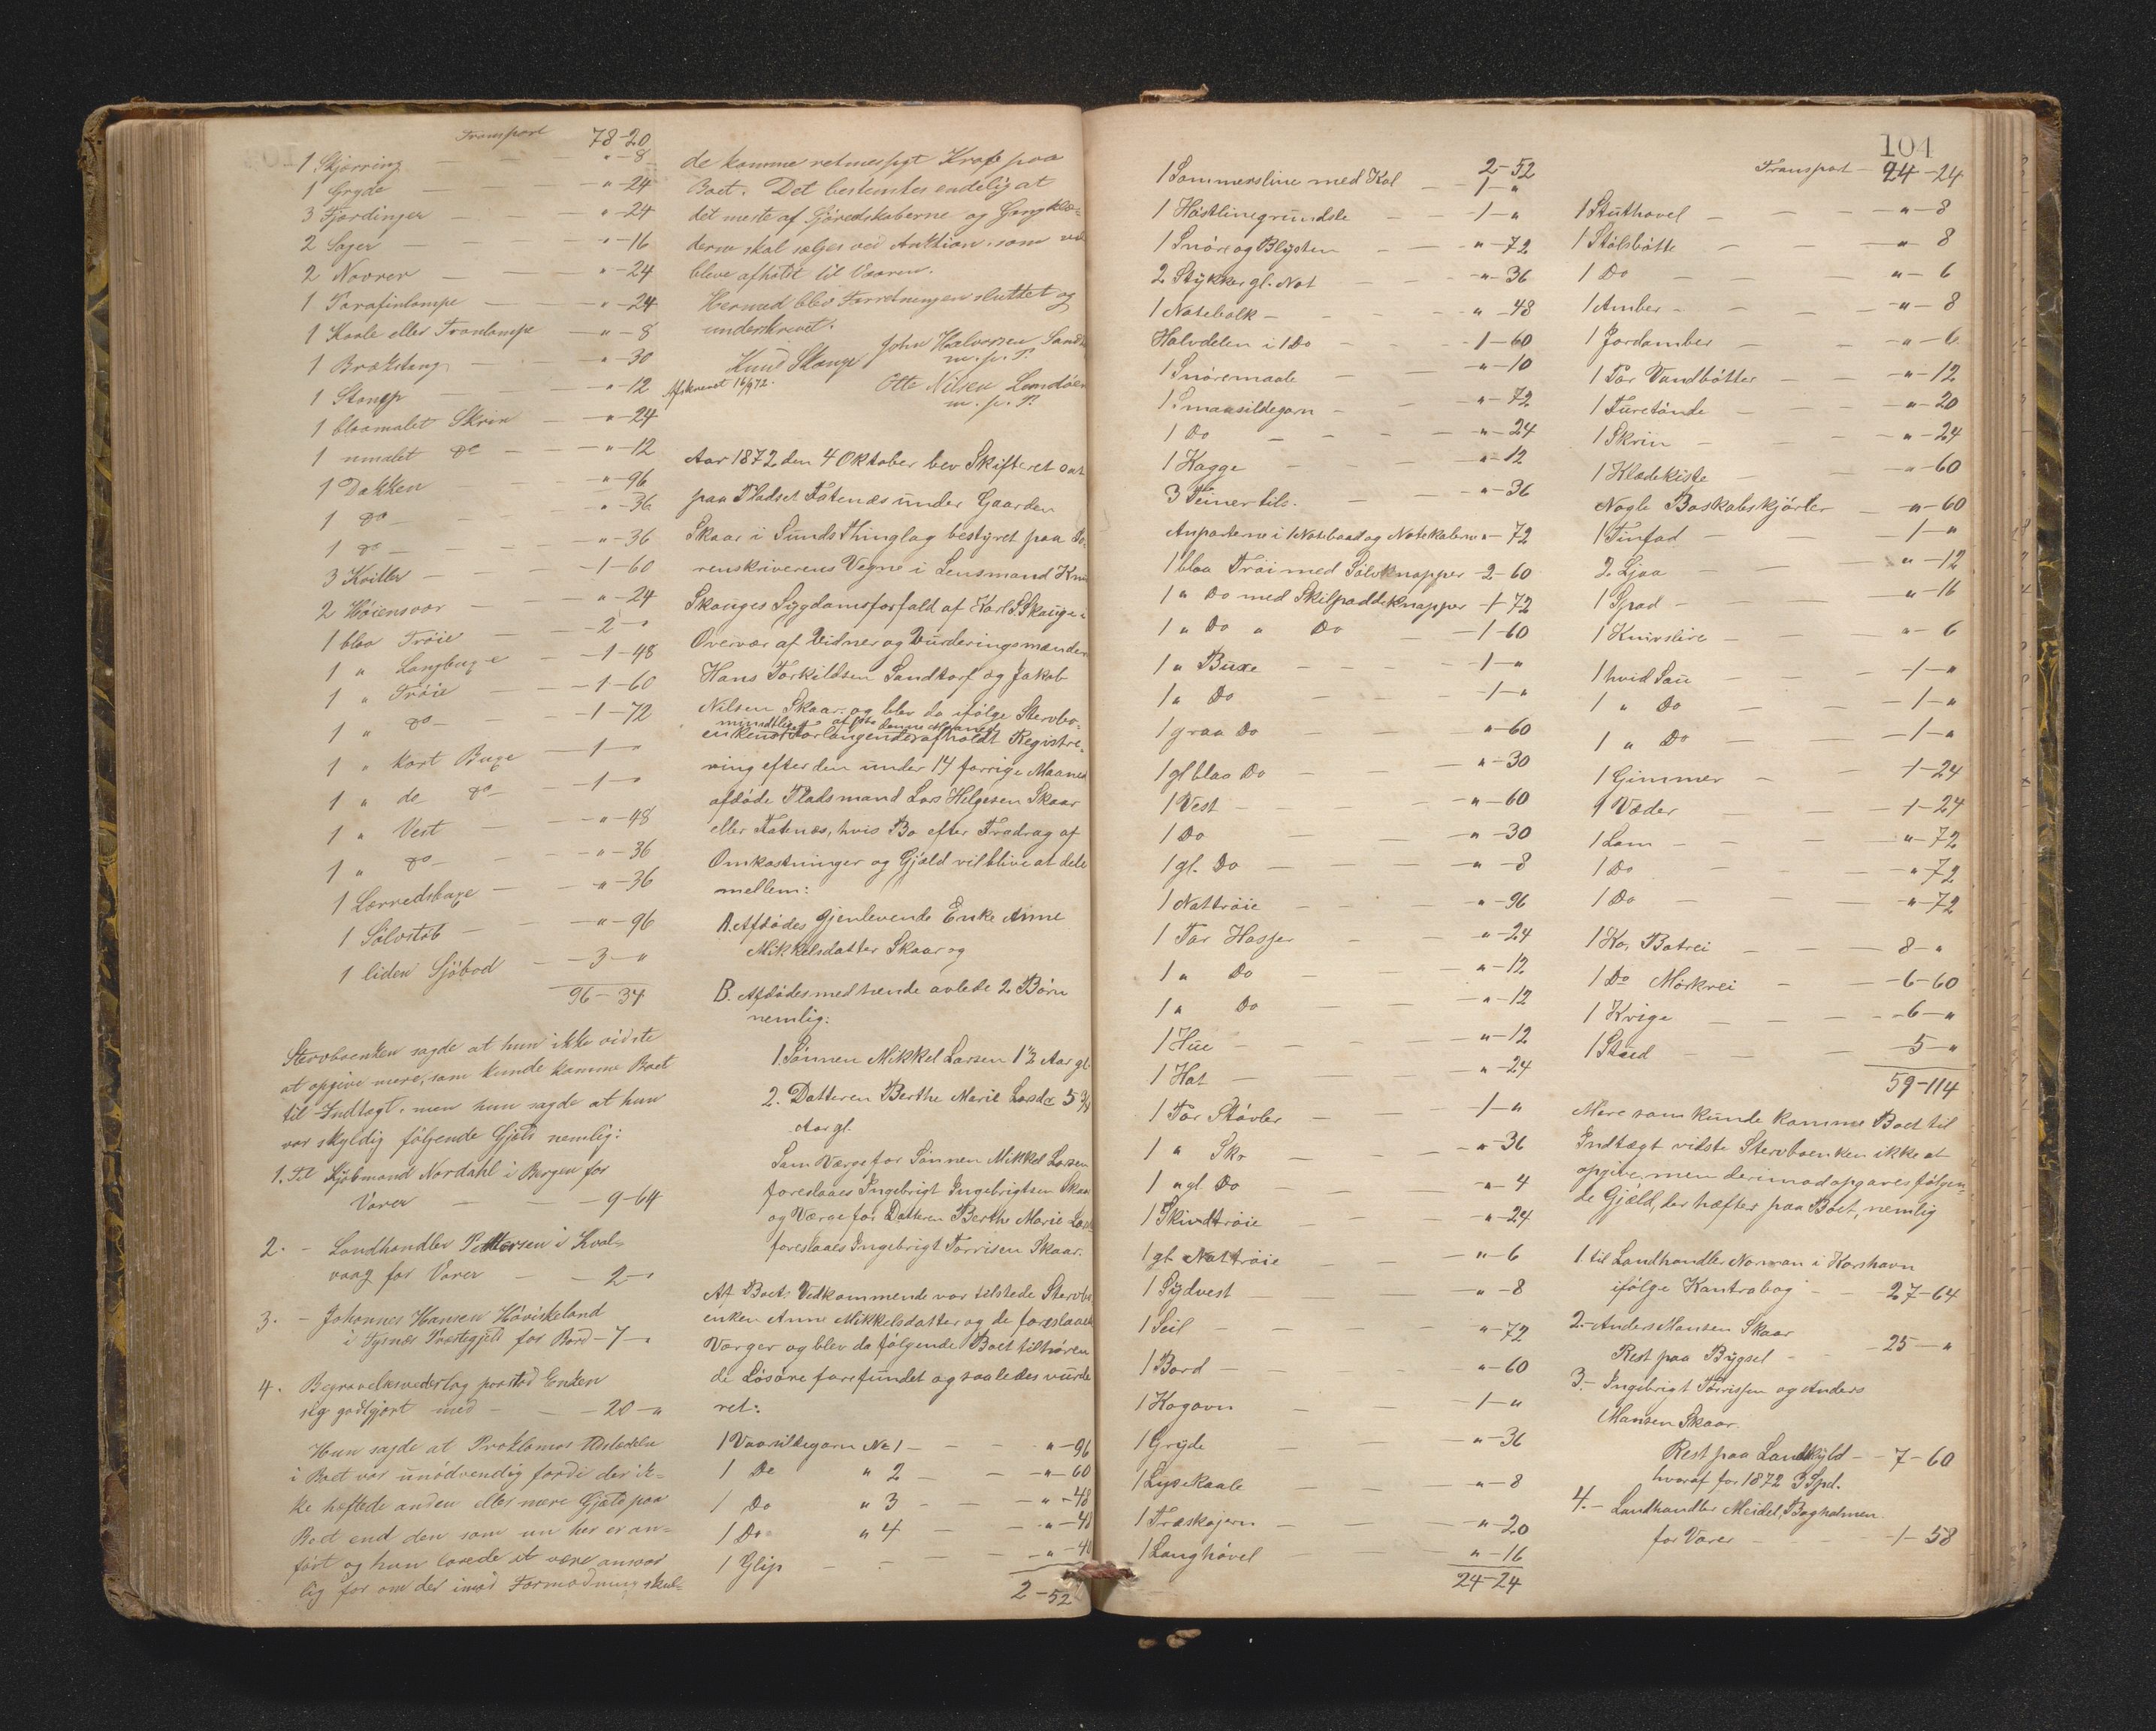 Transport 78-20
1 Skjerring — — "-8
1 Gryde — — "-24
3 Fjordinger — — "-24
2 Sager — — "-16
2 Navrer — — "-24
1 Parafinlampe — "-24
1 Kaale eller Tranlampe — "-8
1 Brækstang — "-30
1 Stamp — — "-12
1 blaamalet Skrin — "-24
1 umalet do — "-12
1 Dækken — "-96
1 do — — "-36
1 do — — "-36
3 Kvitler — — 1-60
2 Høiensvar — "-24
1 blaa Trøie — 2-"
1 " Langbuxe — 1-48
1 " Trøie — 1-60
1 " do — 1-72
1 " kort Buxe — 1-"
1 " do do — 1-"
1 " Vest — "-48
1 " do — "-36
1 Lærredsbuxe — "-36
1 Sølvstøb — "-96
1 liden Sjøbod — 3-"
96-34
Stervboenken sagde at hun ikke vidste
at opgive mere, som kunde komme Boet
til Indtægt, men hun sagde at hun
var skyldig følgende Gjæld nemlig:
1. til Kjøbmand Nordahl i Bergen for
Varer — — 9-64
2. - Landhandler Pettersen i Kval-
vaag for Varer — 2-"
3. - Johannes Hansen Høviskeland
i Tysnes Præstegjeld for Bord - 7-"
4. Begravelsesvederlag paastod Enken
sig godtgjort med — 20-"
Hun sagde at Proklamas Udstedelse
i Boet var unødvendig fordi der ik-
ke heftede anden eller mere Gjæld paa
Boet end den som nu her er an-
ført og hun lovede at være ansvar
lig for om der imod Formodning skul-
de komme retmessigt Krav paa
Boet. Det bestemtes endelig at
det meste af Sjøredskaberne og Gangklæ-
derne skal sælges ved Auktion, som vil
blive afholdt til Vaaren.
Hermed blev Forretningen sluttet og
underskrevet.
Knud Skauge John Halvorsen Sand
m. p. P.
Afskrevet 16/9 72. Otto Nilsen Lundøen
m. p. P.
Aar 1872 den 4 Oktober blev Skifteret sat
paa Pladset Fatenæs under Gaarden
Skaar i Sunds Thinglag bestyret paa So-
renskriverens Vegne i Lensmand Knu
Skauges Sygdomsforfald af Karl S. Skauge i
Overvær af Vidner og Vurderingsmænden
Hans Torkildsen Sandtorf og Jakob
Nilsen Skaar. og blev da ifølge Stervbo-
mundtlige af 1ste denne Maaned
enkens Forlangende afholdt Registre-
ring efter den under 14 forrige Maaned
afdøde Pladsmand Lars Helgesen Skaar
eller Fatenæs, hvis Bo efter Fradrag af
Omkostninger og Gjæld vil blive at dele
mellem:
A. Afdødes gjenlevende Enke Anne
Mikkelsdatter Skaar og
B. Afdødes med hende avlede 2 Børn
nemlig:
1. Sønnen Mikkel Larsen 1 1/2 Aar gl.
2. Datteren Berthe Marie Larsdr 5 3/4
Aar gl.
Som Værge for Sønnen Mikkel Larsen
foreslaaes Ingebrigt Ingebrigtsen Skaar
og Værge for Datteren Berthe Marie Lars
foreslaaes Ingebrigt Torrisen Skaar.
Af Boets Vedkommende var tilstede Stervbo
enken Anne Mikkelsdatter og de foreslaaede
Værger og blev da følgende Boet tilhøren
de Løsøre forefundet og saaledes vurde
ret:
1 Vaarsildegarn No 1 — — "-96
1 Do " 2 — — "-60
1 Do " 3 — — "-48
1 Do " 4 — — "-48
1 Glip — — "-40
2-52
104
2-52
1 Sommersline med Kol — 1-"
1 Høstlinegrundsle — 1-"
1 Snøre og Blysten — "-72
2 Stykker gl. Not — "-36
1 Notebolk — — "-48
Halvdelen i 1 Do — 1-60
1 Snøremaale — "-10
1 smaasildegarn — "-72
1 Do — — "-24
1 Kagge — — "-12
3 Teiner tils. — "-36
Anparterne i 1 Notebaad og Notekablerne "-72
1 blaa Trøi med Sølvknapper - 2-60
1 " Do med Skilpaddeknapper - 1-72
1 " Do " Do — 1-60
1 " Buxe — — 1-"
1 " Do — — 1-"
1 graa Do — "-60
1 gl blaa Do — "-30
1 Vest — — "-60
1 Do — — "-30
1 gl. Do — — "-8
1 Nattrøie — "-96
1 Par Hosser — "-24
1 " Do — "-12
1 " Do — "-12
1 Hue — — "-12
1 Hat — — "-24
1 Par Støvler — 1-"
1 " Sko — "-36
1 " gl. Do — "-4
1 Skindtrøie — "-24
1 gl. Nattrøie — "-6
1 Sydvest — "-8
1 Seil — — "-72
1 Bord — — "-60
1 Kogovn — 1-"
1 Gryde — — "-36
1 Lysekaale — "-8
1 Træskojern — "-20
1 Langhøvel — "-16
24-24
Transport - 24-24
1 Stuthovel — "-8
1 Stølsbøtte — "-8
1 Do — — "-6
1 Amber — — "-8
1 Jordamber — "-6
1 Par Vandbøtter — "-12
1 Furetønde — "-20
1 Skrin — — "-24
1 Klædekiste — "-60
Nogle Boskabskjørler — "-60
1 Tinfad — 1-"
2 Ljaa — — "-12
1 Spad — — "-16
1 Knivslire — "-6
1 hvid Sau — 1-"
1 " Do — 1-"
1 " Do — 1-"
1 Gimmer — 1-24
1 Væder — 1-24
1 Lam — — "-72
1 Do — — "-72
1 Do — — "-72
1 Ko, Botrei — 8-"
1 Do Mørkrei — 6-60
1 Kvige — — 6-"
1 Stud — — 5-"
59-114
Mere som kunde komme Boet til
Indtægt vidste Stervboenken ikke at
opgive, men derimod opgaves følgen-
de Gjæld, der hæfter paa Boet, nemlig
1. til Landhandler Norman i Korshavn
ifølge Kontrabog — 27-64
2. - Anders Hansen Skaar
Rest paa Bygsel — 25-"
3. - Ingebrigt Torrissen og Anders
Hansen Skaar.
Rest paa Landskyld - - 7-60
hvoraf for 1872 3 Spd.
4. - Landhandler Meidel, Bagholmen
for Varer — 1-58